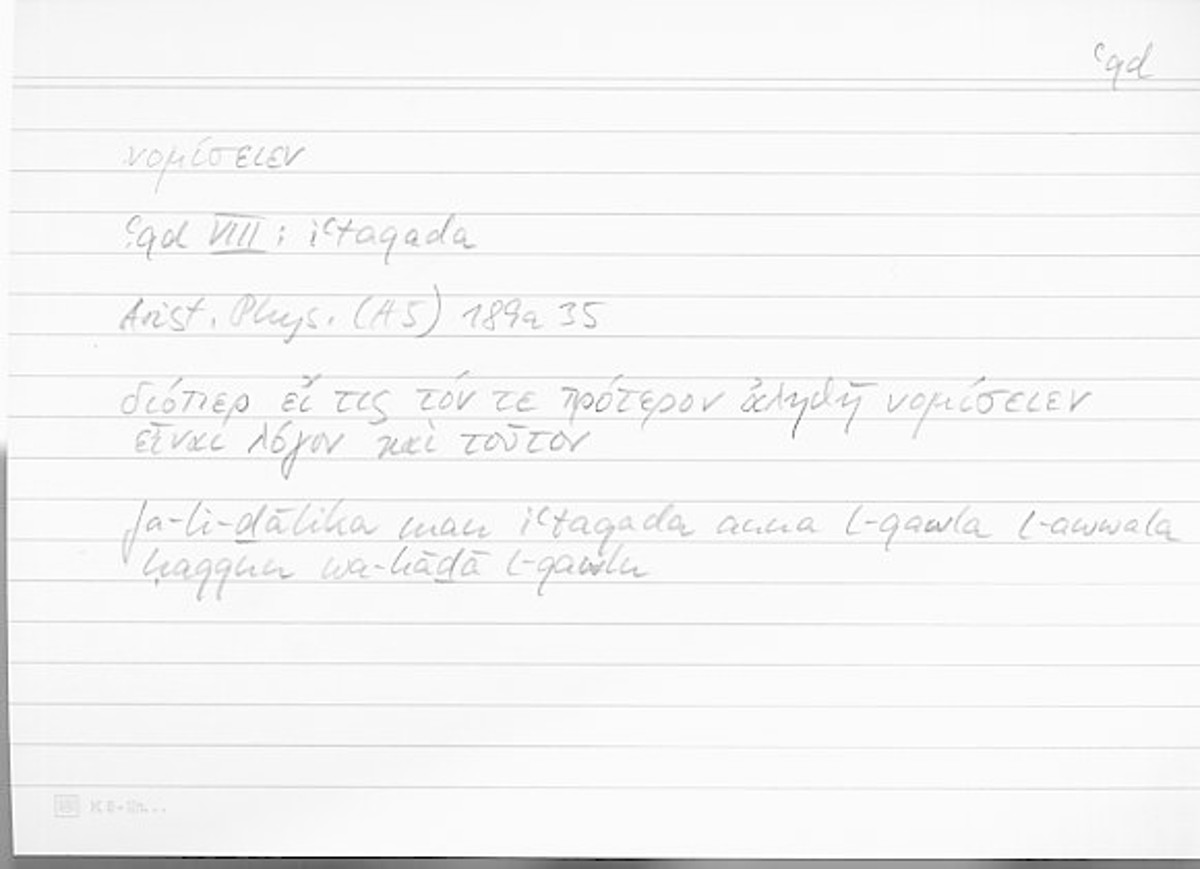 ʿqd
νομίσειεν
ʿqd VIII: iʿtaqada
Arist. Phys. (A5) 189a 35
διόπερ εἴ τις τόν τε πρότερον ἀληθῆ νομίσειεν
εἶναι λόγον καὶ τοῦτον
fa-li-ḏālika man iʿtaqada anna l-qawla l-awwala
ḥaqqun wa-hāḏā l-qawlu